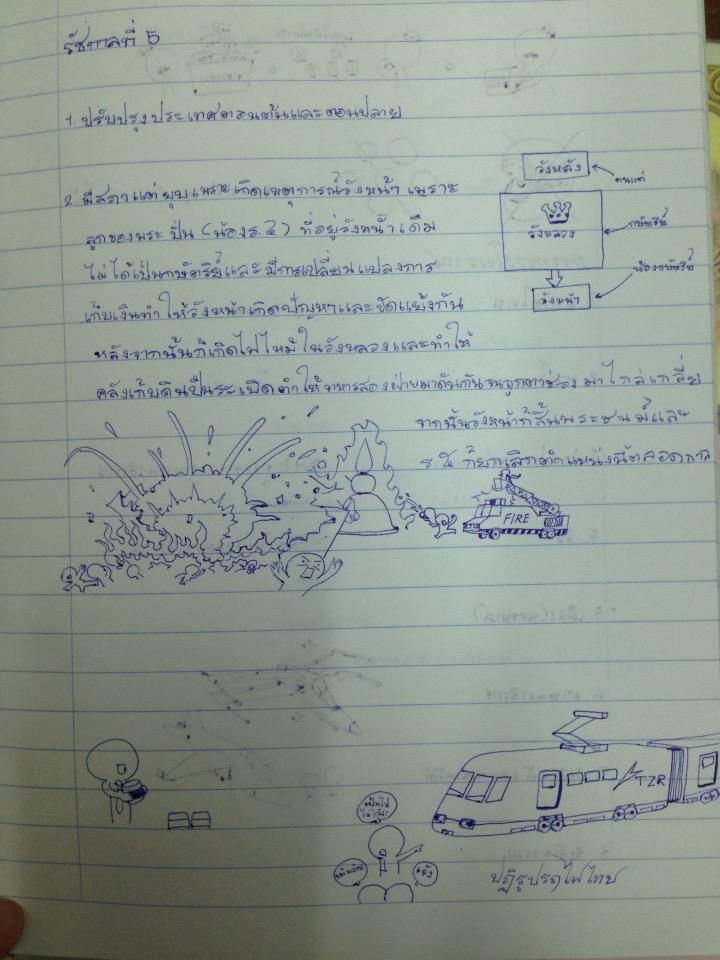 รัชกาลที่ 5
1. ปรับปรุงประเทศตอนต้นและตอนปลาย
วังหลัง
คนแก่
วังหลวง
กษัตริย์
วังหน้า
น้องกษัตริย์
2. มีสภาแต่ยุบเพราะเกิดเหตุการณ์วังหน้า เพราะ
ลูกของพระปิ่น (น้องร.4) ที่อยู่วังหน้าเดิม
ไม่ได้เป็นกษัตริย์และมีการเปลี่ยนแปลงการ
เก็บเงินทำให้วังหน้าเกิดปัญหาและขัดแย้งกัน
หลังจากนั้นก็เกิดไฟไหม้ในวังหลวงและทำให้
คลังเก็บดินปืนระเบิดทำให้ทหารสองฝ่ายมาดันกันจนถูกตาช่วง มาไกล่เกลี่ย
จากนั้นวังหน้าก็สิ้นพระชนม์และ
ร.5 ก็ยกเลิกตำแหน่งนี้ตลอดกาล
FIRE
TZR
เป็นไปไม่ได้
ปฏิรูปรถไฟไทย